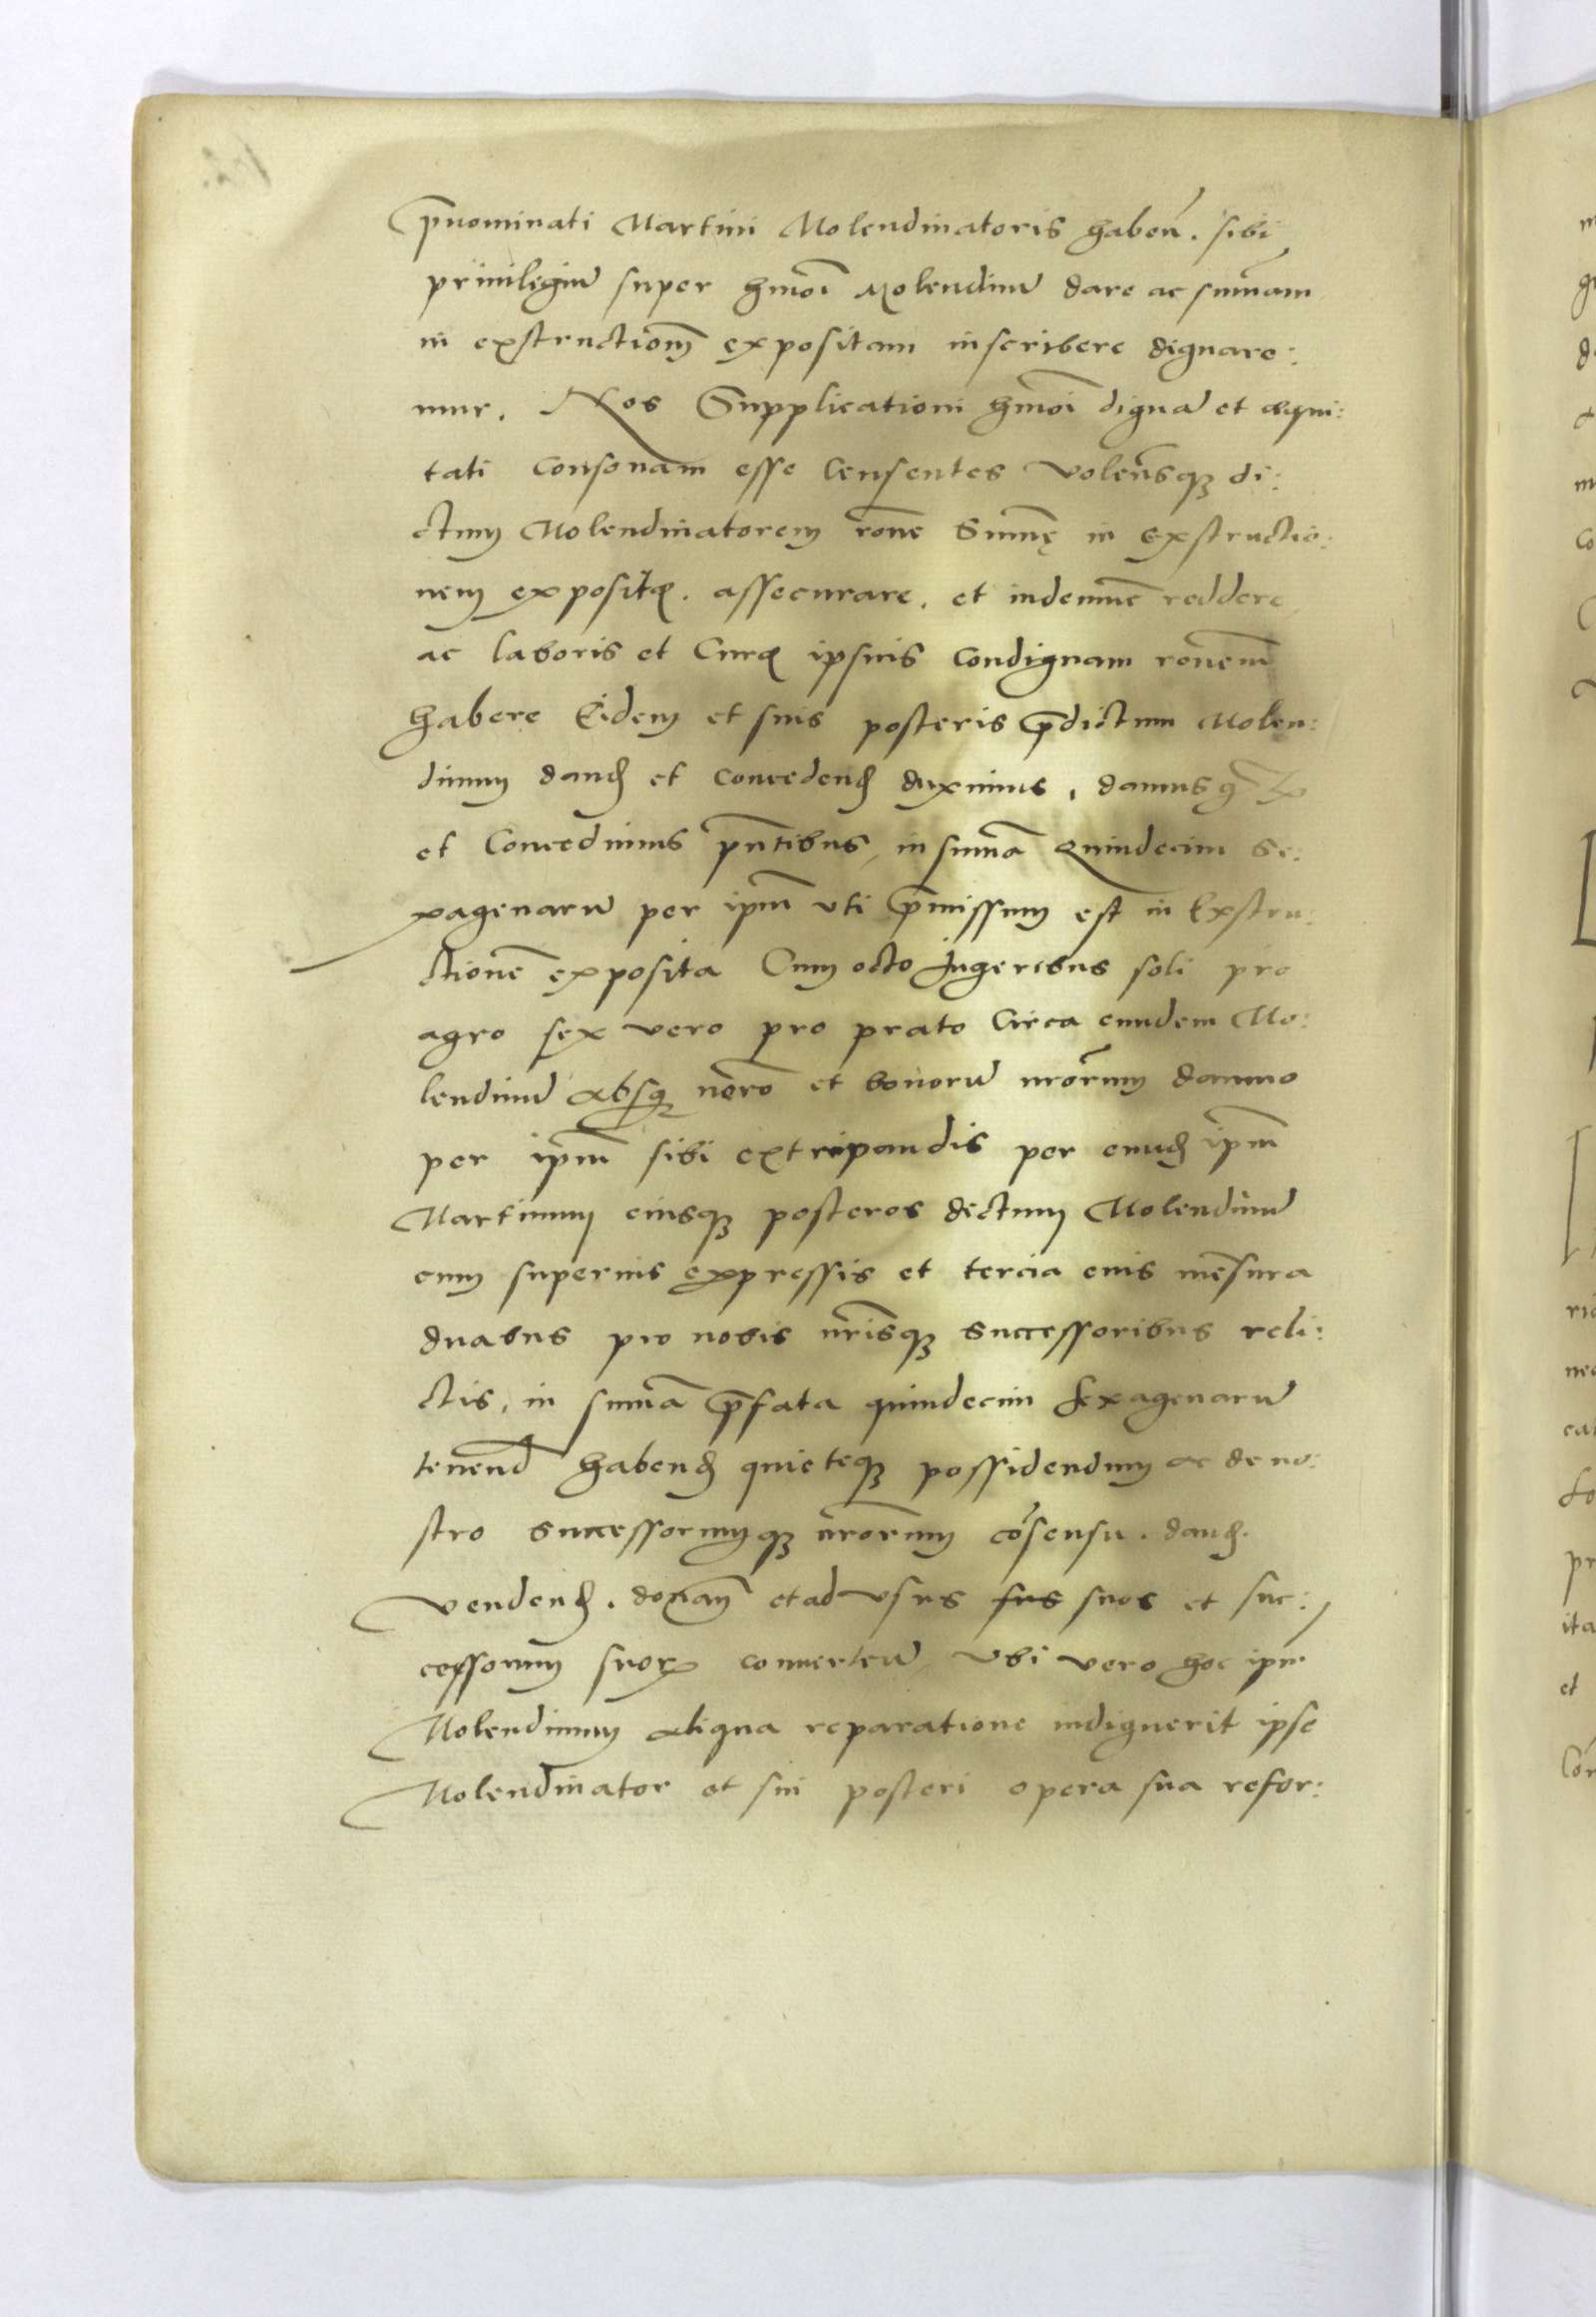 p̄nominati Martini Molendinatoris habeñ. sibi
priuilegiū super hmōi Molendinū dare ac sum̄am
in exstructionē expositam inscribere dignare:
mur. Nos Supplicationi hmōi dignā et aequi:
tati consonam esse Censentes volen̄sq₃ di:
ctum Molendinatorem rōne Summę in exstructio:
nem expositę. assecurare. et indemnē reddere
ac laboris et Curę ipsius condignam rōnem̄
habere Eidem et suis posteris p̄dictum Molen:
dinum dand et concedend duximus, damusq₃
et Concedimus pn̄tibus, in sum̄a Quindecim Se:
xagenarū per ipm̄ vti p̄missum est in Exstru:
ctionē exposita Cum octo Iugeribus soli pro
agro sex vero pro prato Circa eundem Mo:
lendinū absq₃ nr̄o et bonorū nr̄orum damno
per ipm̄ sibi extirpandis per eund ipm̄
Martinum eiusq₃ posteros dictum Molendinū
cum superius expressis et tercia eius mēsura
duabus pro nobis nr̄isq₃ successoribus reli:
ctis, in sum̄a p̄fata quindecim sexagenarū
tenend habend quieteq₃ possidendum ac de no:
stro successorumq₃ nr̄orum cōsensu. dand.
Vendend. donan̄ et ad vsus sus suos et suc:
cessorum suorꝝ conuerten̄ Vbi vero hoc ipm̄
Molendinum aliqua reparatione indiguerit ipse
Molendinator et sui posteri opera sua refor: